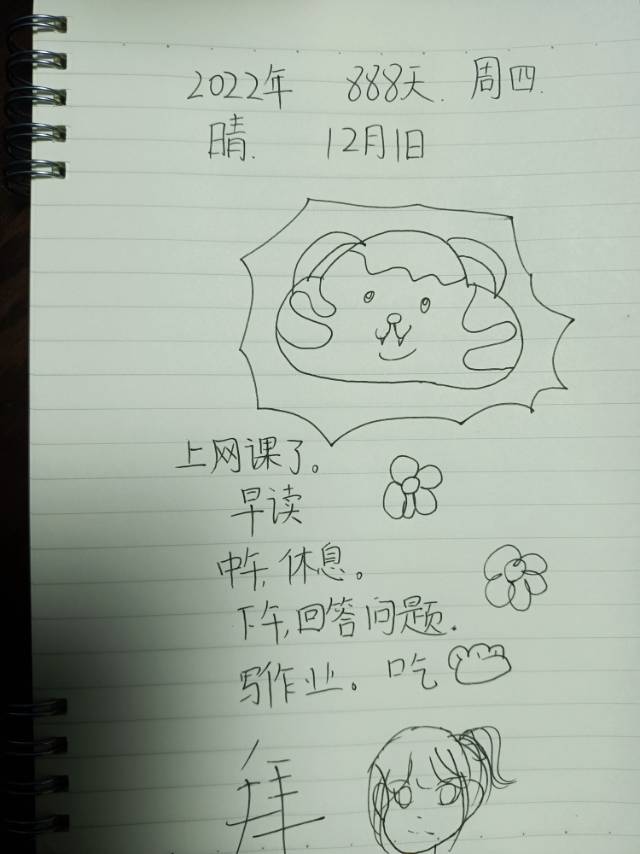 2022年 888天. 周四.
晴. 12月1日
上网课了。
早读
中午,休息。
下午,回答问题.
写作业。吃
拜